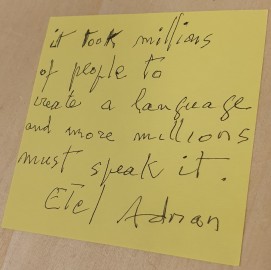 it took millions
of people to
create a language
and more millions
must speak it.
Etel Adnan